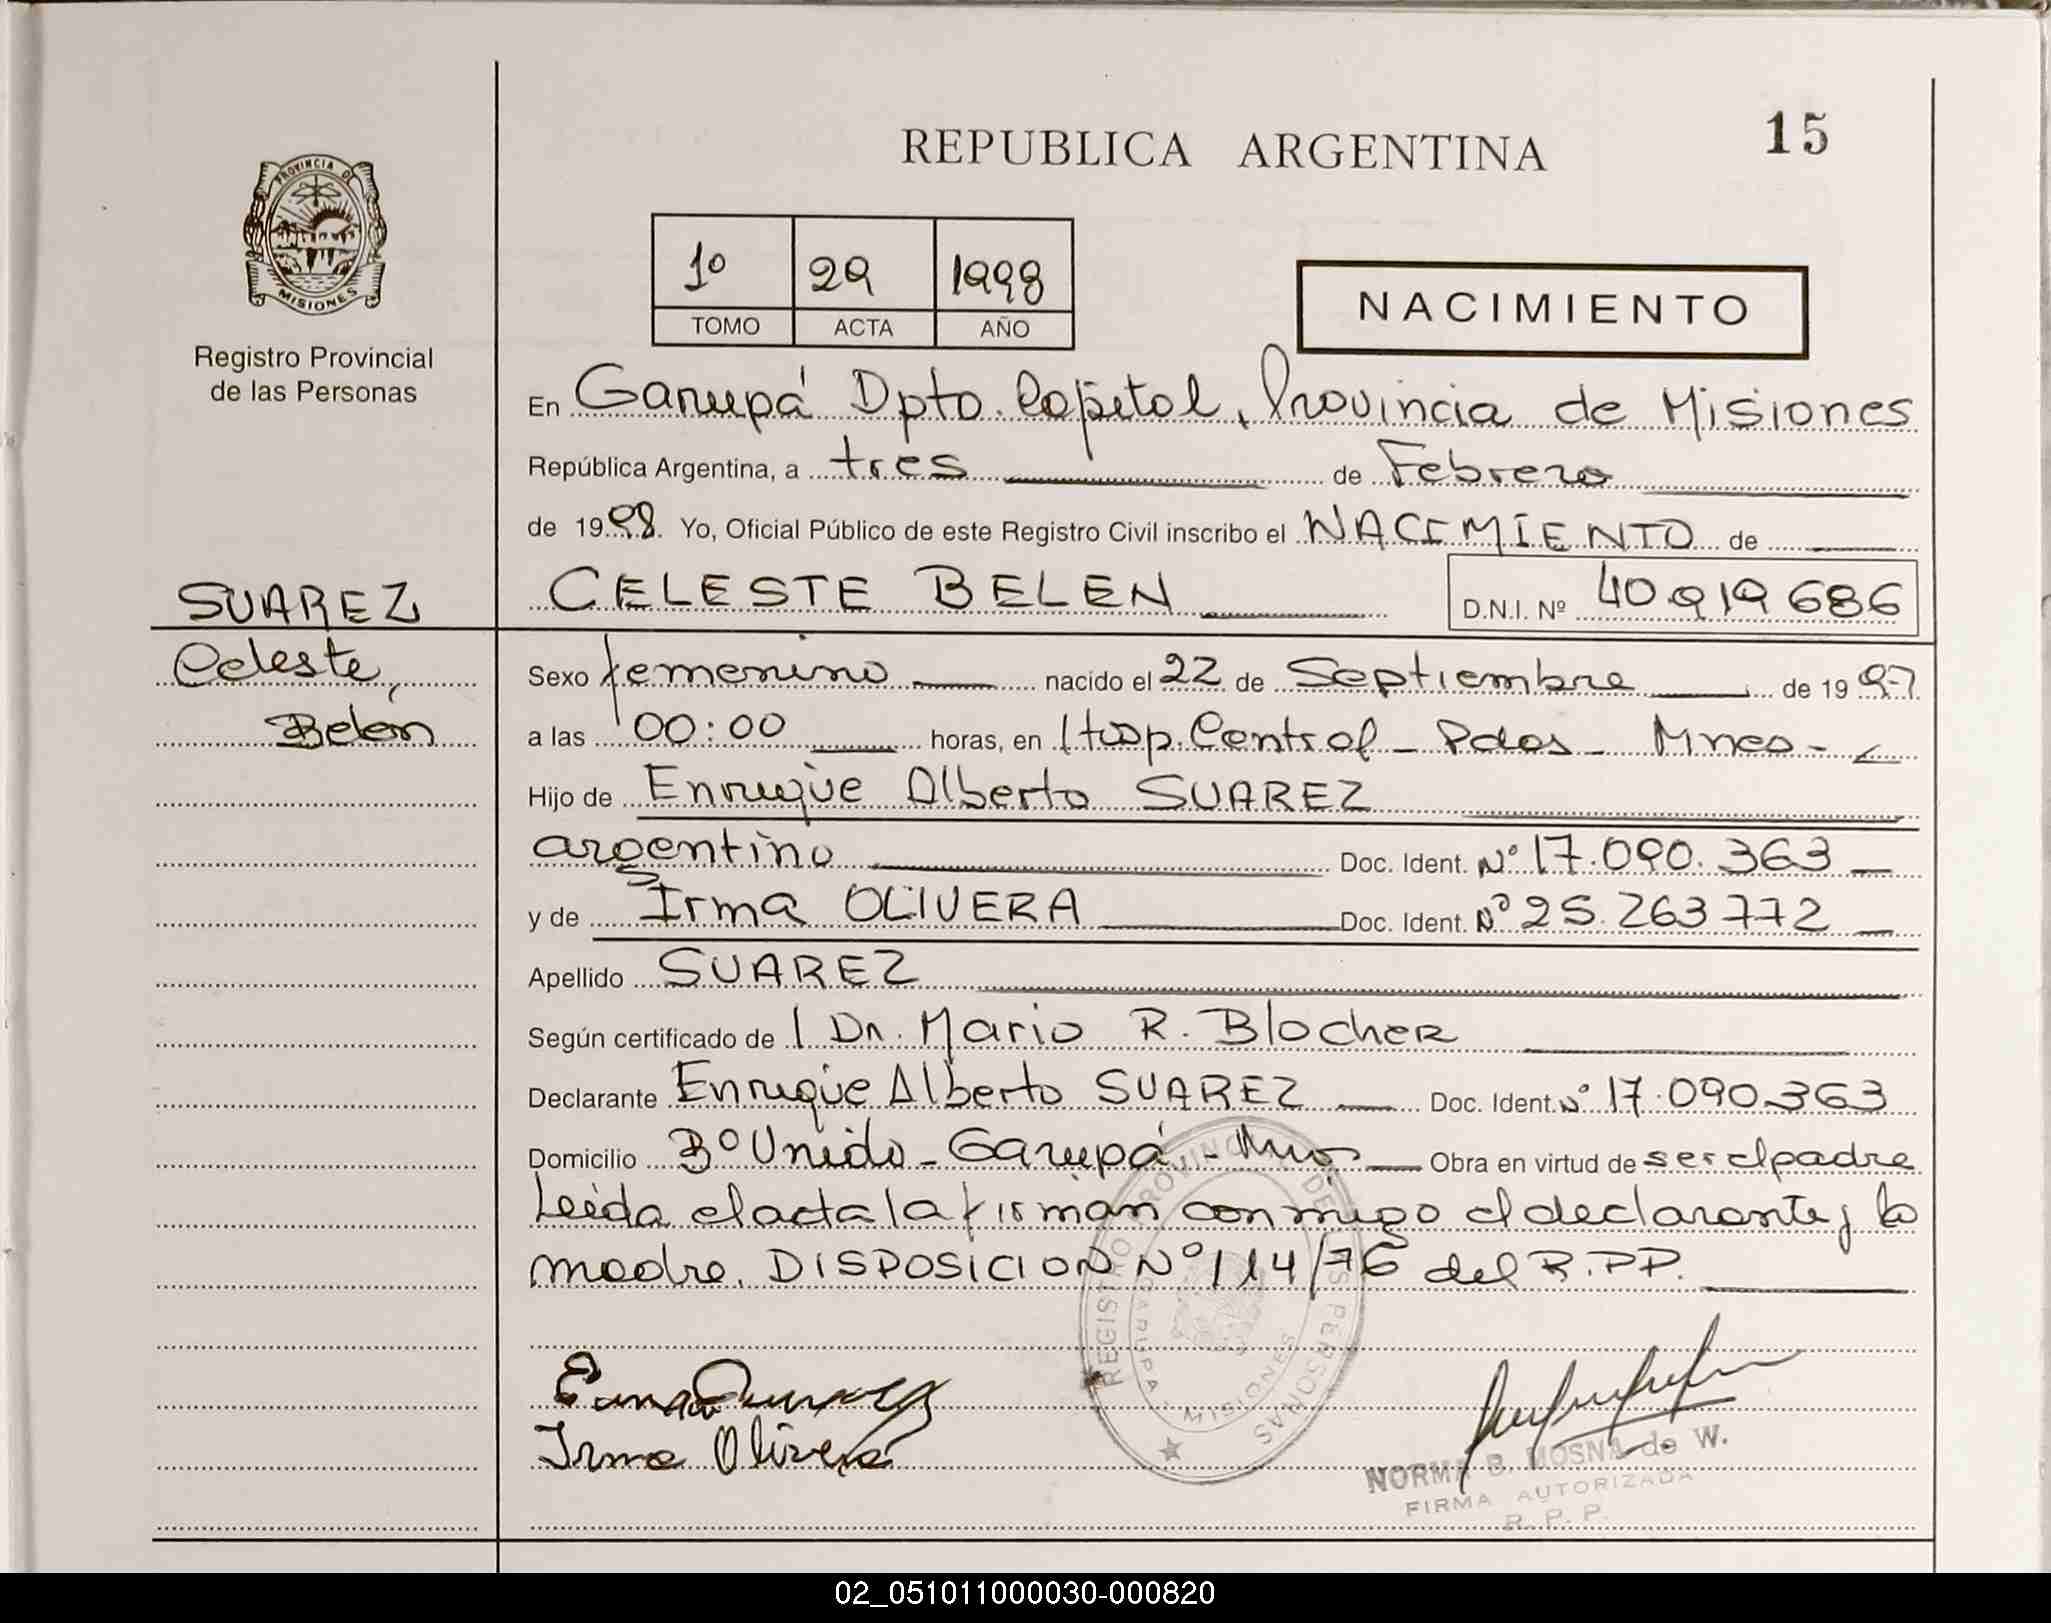 REPUBLICA ARGENTINA
15
PROVINCIA DE
MISIONES
Registro Provincial
de las Personas
1º 29 1998
TOMO ACTA AÑO
NACIMIENTO
En Garupá Dpto. Capital, Provincia de Misiones
República Argentina, a tres de Febrero
de 1998. Yo, Oficial Público de este Registro Civil inscribo el NACIMIENTO de
SUAREZ
CELESTE BELEN D.N.I. Nº 40.919 686
Celeste,
Belén
Sexo femenino nacido el 22 de Septiembre de 1997
a las 00:00 horas, en Hosp. Central - Pdas - Mnes -
Hijo de Enrique Alberto SUAREZ
argentino Doc. Ident. Nº 17.090.363
y de Irma OLIVERA Doc. Ident. Nº 25.263 772
Apellido SUAREZ
Según certificado de Dr. Mario R. Blocher
Declarante Enrique Alberto SUAREZ Doc. Ident. Nº 17.090.363
Domicilio Bº Unido - Garupá - Mnes Obra en virtud de ser el padre
Leída el acta la firman conmigo el declarante y la
madre. DISPOSICION Nº 114/76 del R.P.P.
REGISTRO PROVINCIAL DE LAS PERSONAS
GARUPA - MISIONES
Irma Olivera
NORMA B. MOSNA de W.
FIRMA AUTORIZADA
R. P. P.
02_051011000030-000820